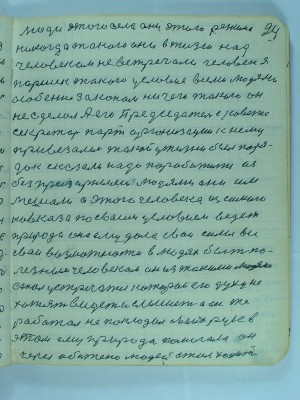 24
люди этого села они этого режим
никогда такого они в жизни над
человеком не встречали человек я
такого условие всем людям
особенно законом ничего такого он
не сделал А его Председател
секретар парт организации к нему
привезали такой жизни был поря-
док сказал надо поработити са
без людями они им
мешали а этого человека из самого
кавказа по своим условием ведет
природа она ему дала свои силы вы
свои возможности в людях быт по-
лезным человеком он из такими людями
стал встречатся которые его духу не
хотят видет и слышет а он же
работал не покладая своих рук в
этом ему природа помогала он
через обижено людей стал ходит